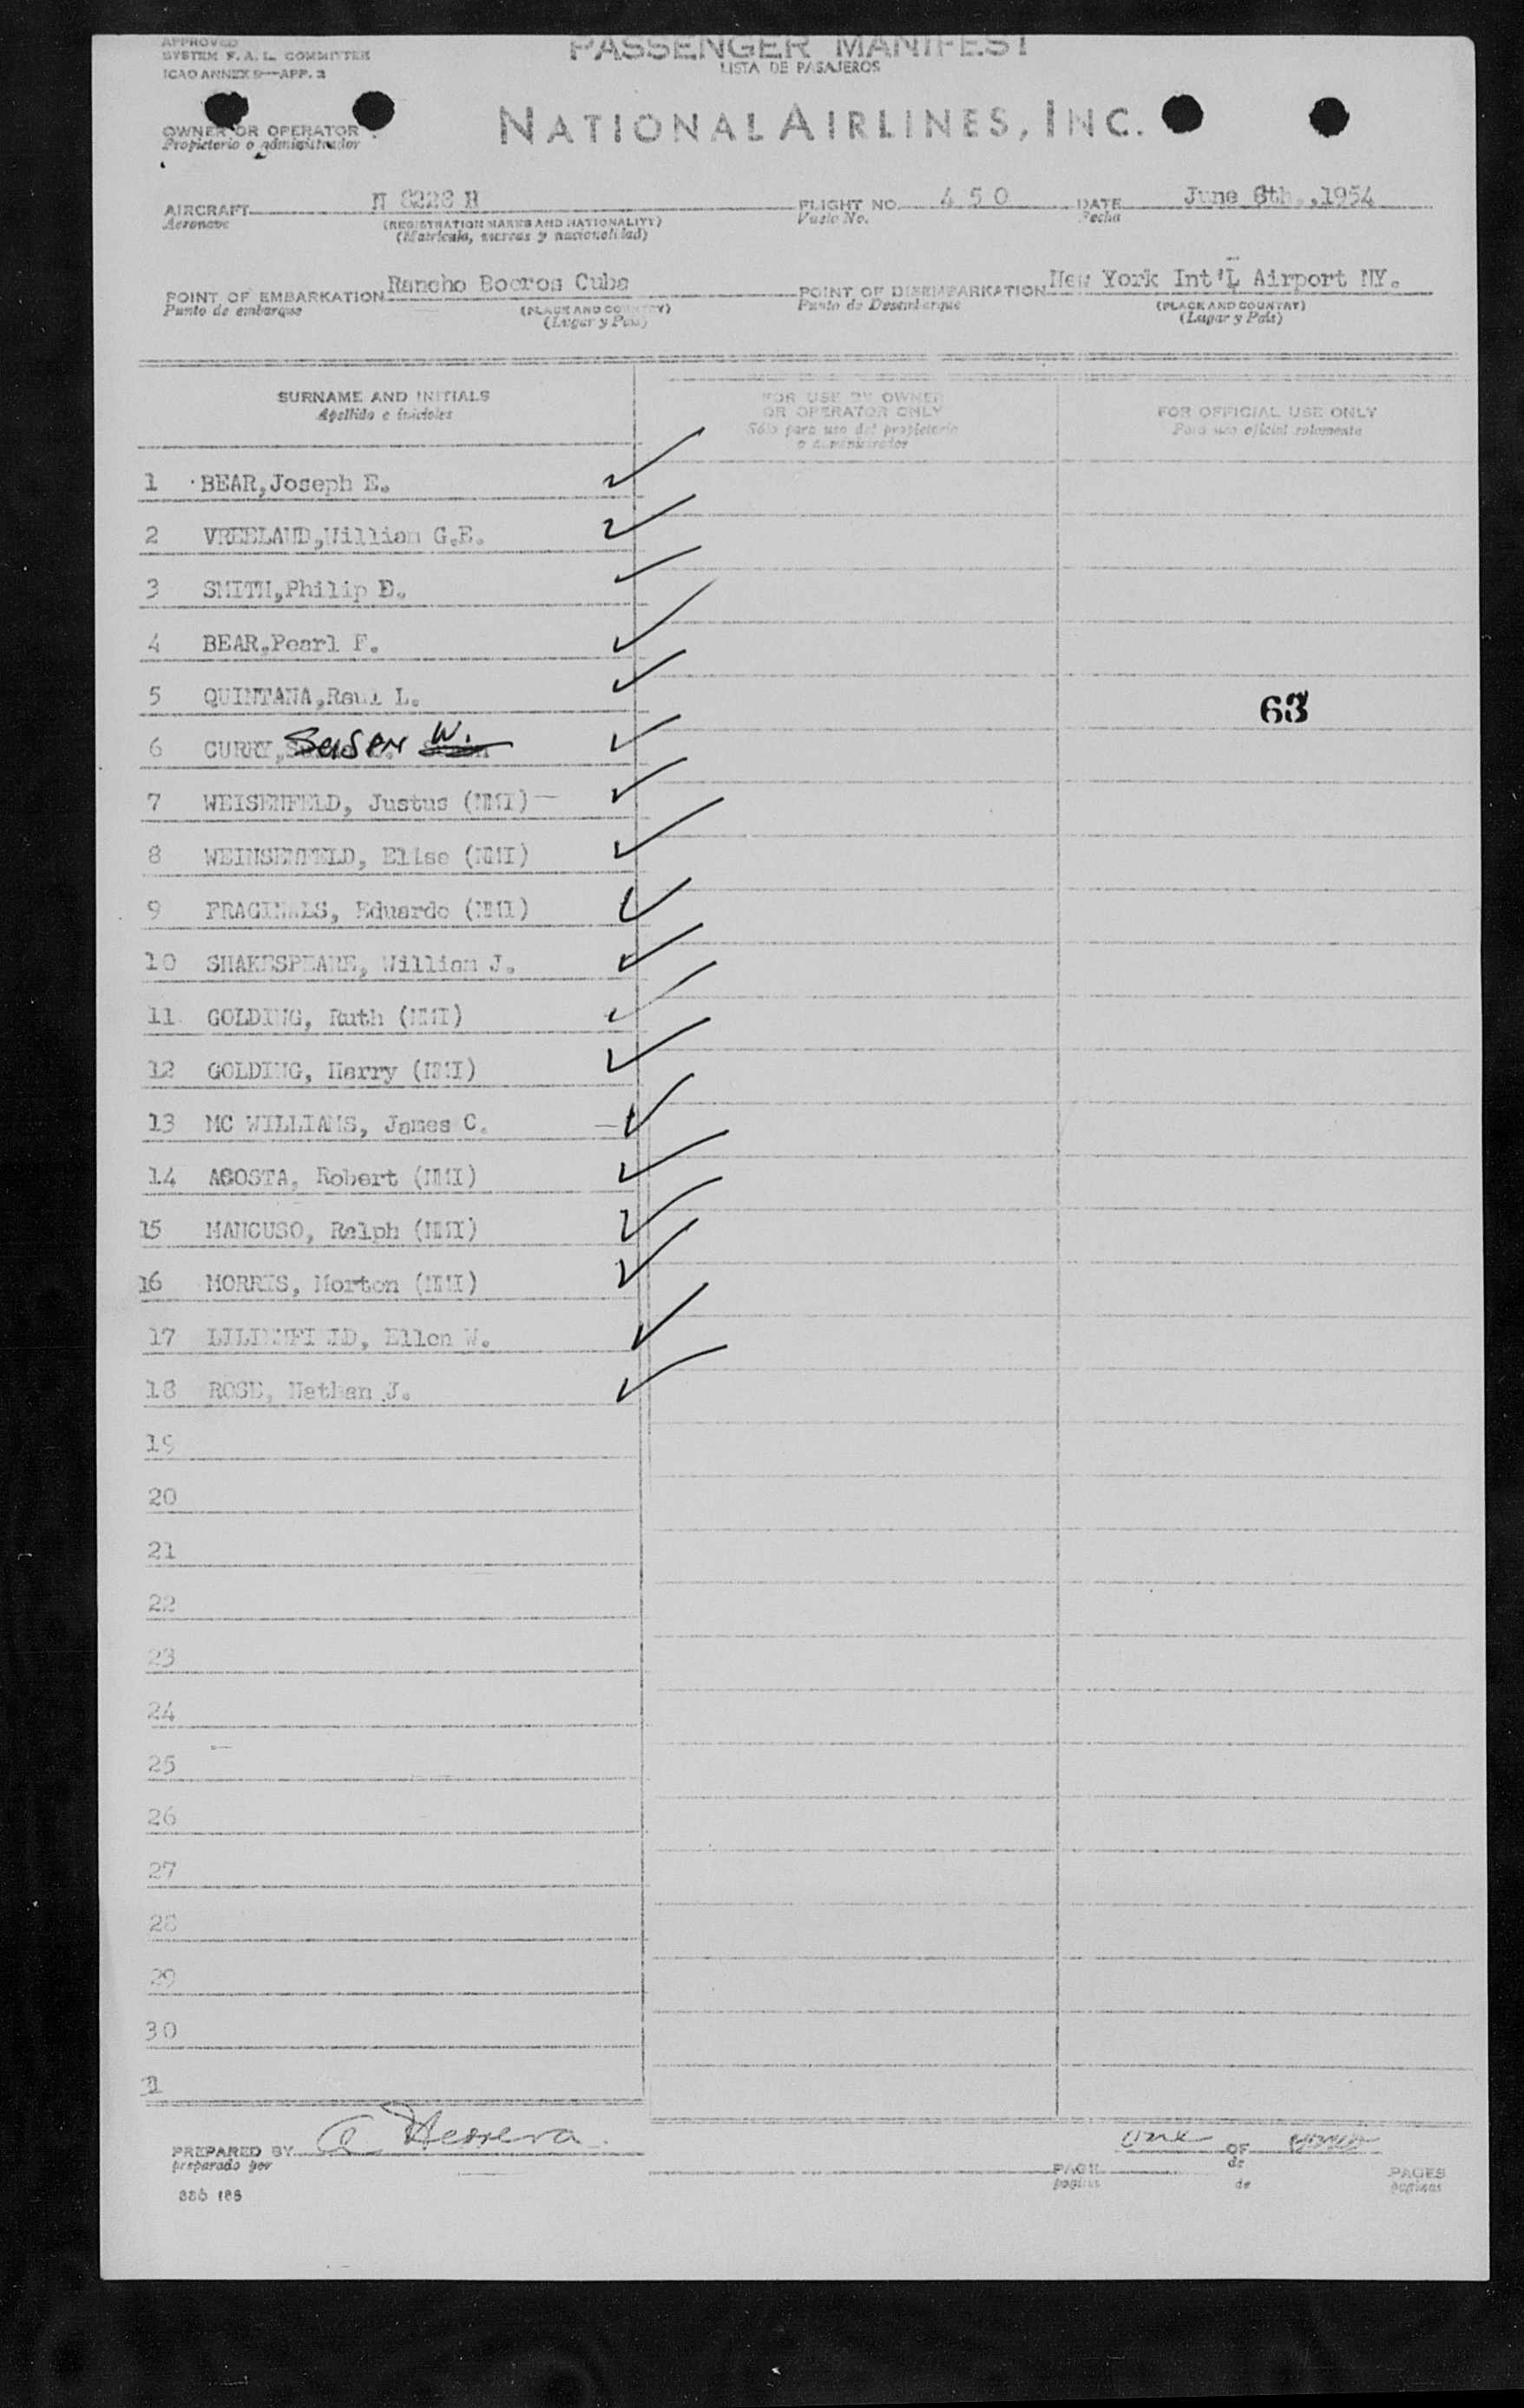 APPROVED
SYSTEM F. A. L. COMMITTEE
ICAO ANNEX 9—APP. 2
PASSENGER MANIFEST
LISTA DE PASAJEROS
OWNER OR OPERATOR
Propietario o administrador
NATIONAL AIRLINES, INC.
AIRCRAFT N 8228 H FLIGHT NO. 4 5 0 DATE June 8th.,1954
Aeronave (REGISTRATION MARKS AND NATIONALITY) Vuelo No. Fecha
(Matricula, marcas y nacionalidad)
POINT OF EMBARKATION Rancho Boeros Cuba POINT OF DISEMBARKATION New York Int'L Airport NY.
Punto de embarque (PLACE AND COUNTRY) Punto de Desembarque (PLACE AND COUNTRY)
(Lugar y Pais) (Lugar y País)
SURNAME AND INITIALS
Apellido e iniciales
FOR USE BY OWNER
OR OPERATOR ONLY
Sólo para uso del propietario
o administrador
FOR OFFICIAL USE ONLY
Para uso oficial solamente
1 BEAR,Joseph E.
2 VREELAUD,William G.E.
3 SMITH,Philip E.
4 BEAR,Pearl F.
5 QUINTANA,Raul L.
63
6 CURRY, Susen W.
7 WEISENFELD, Justus (NMI)
8 WEINSENFELD, Elise (NMI)
9 FRAGINALS, Eduardo (NMI)
10 SHAKESPEARE, William J.
11 GOLDING, Ruth (NMI)
12 GOLDING, Harry (NMI)
13 MC WILLIAMS, James C.
14 ACOSTA, Robert (NMI)
15 MANCUSO, Ralph (NMI)
16 MORRIS, Morton (NMI)
17 Ellen W.
18 ROSE, Nathan J.
19
20
21
22
23
24
25
26
27
28
29
30
PREPARED BY Herrera one OF
preparado por PAGE de PAGES
paginas de paginas